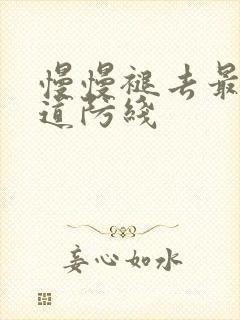 慢慢褪去最
道防线
妄心如水